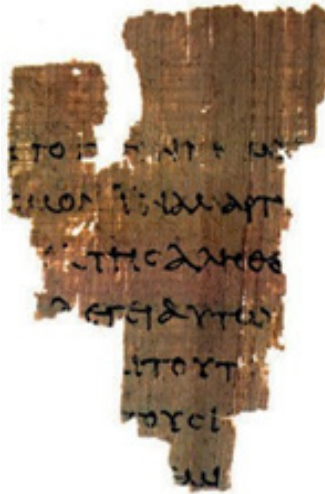 ΤΟ
ΜΟΝ ΙΝΑ ΜΑΡΤ
ΤΗϹ ΑΛΗΘΕ
ΛΕΓΕΙ ΑΥΤΩ
ΙΤΟΥΤ
ΤΟΥϹΙ